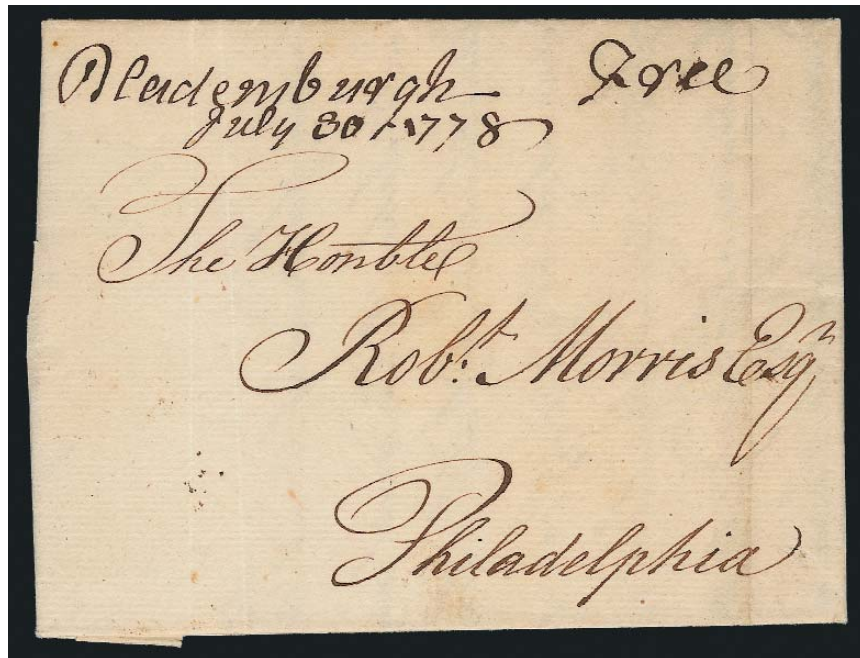 Bladensburgh Free
July 30 1778
The Honble
Robt. Morris Esqr
Philadelphia